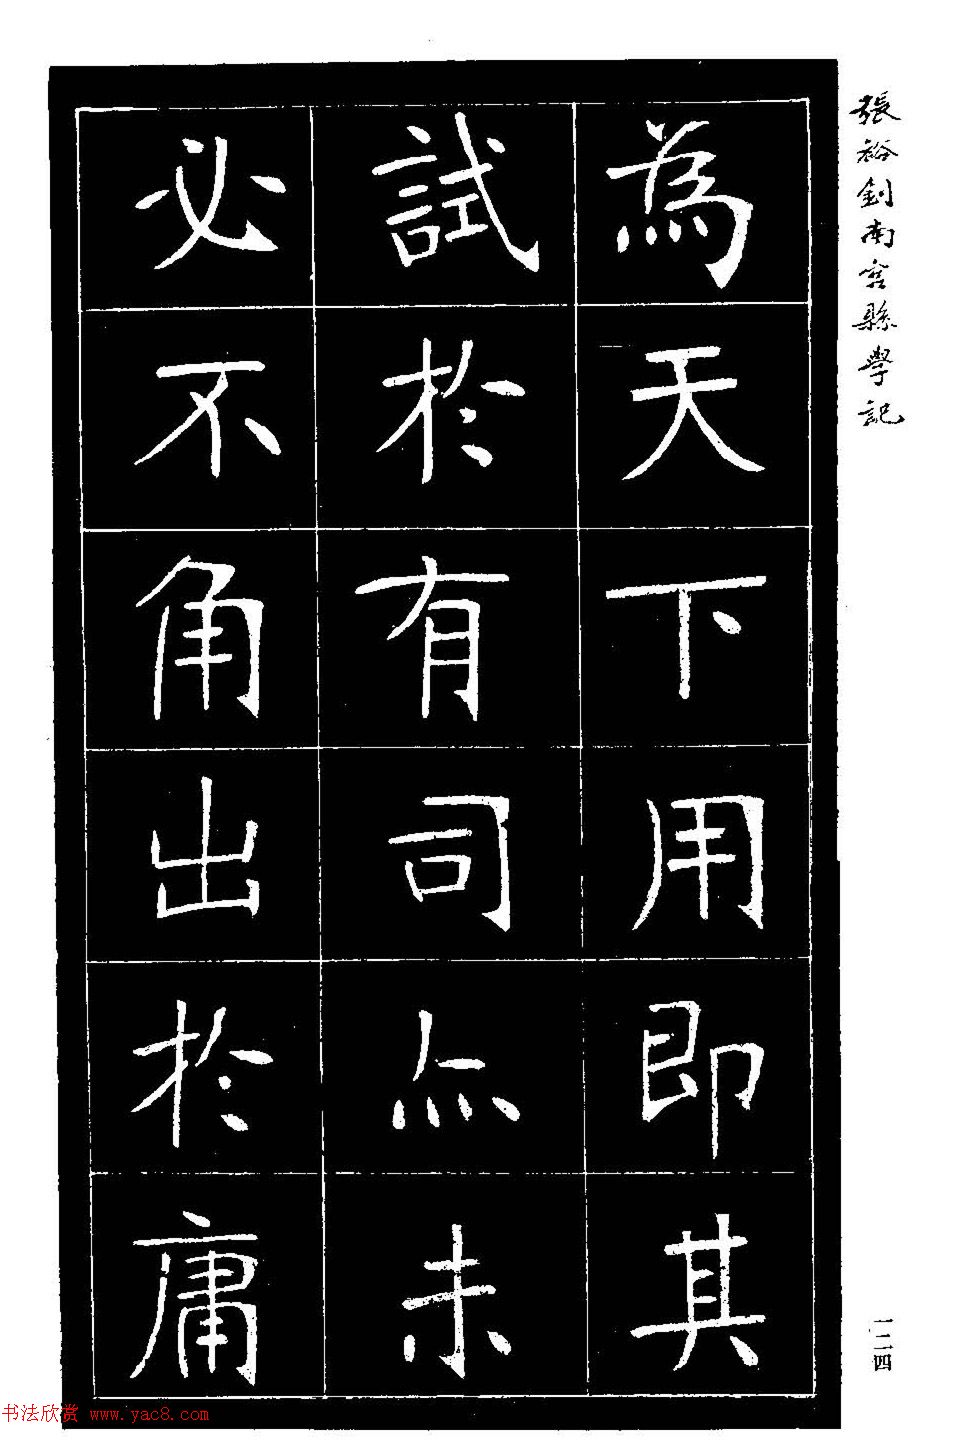 張裕釗南宮縣學記
為天下用即其
試於有司亦未
必不角出於庸
一二四
书法欣赏 www.yac8.com